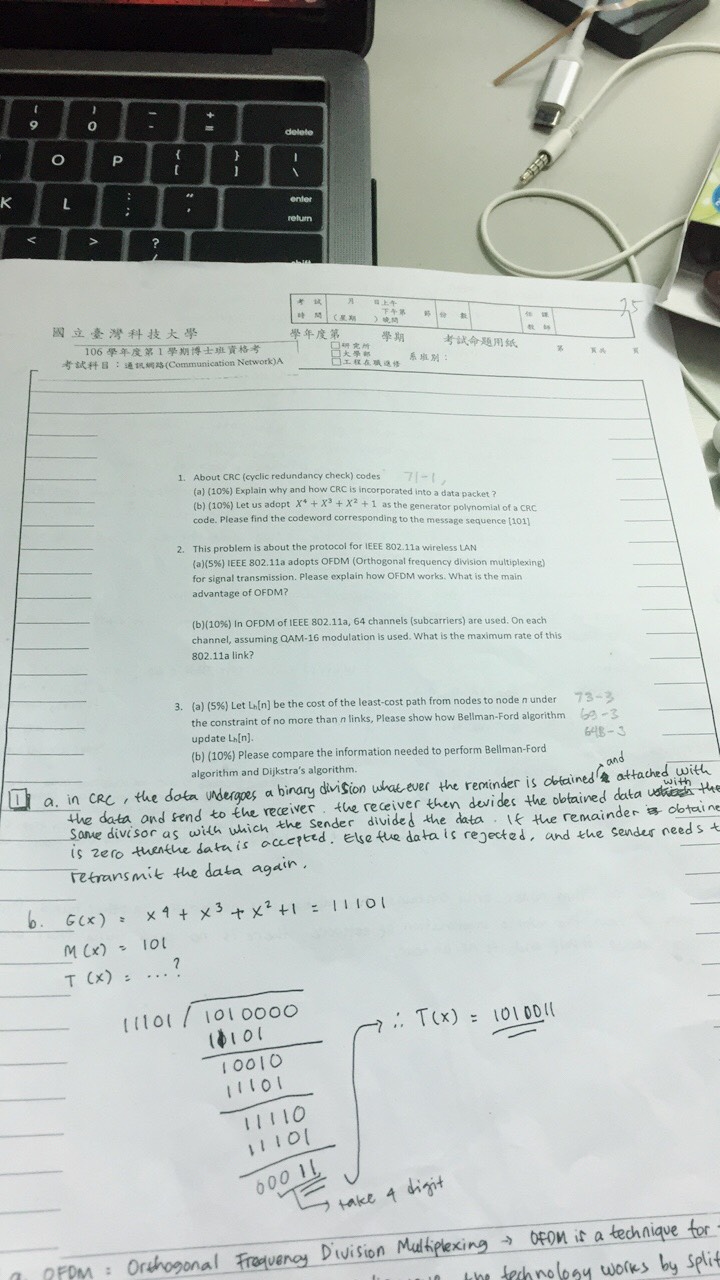 ( 9
) 0
- -
+ =
delete
O P { [ } ] | \
K L : ; " ' enter return
< > ? /
35
考試時間 月 日上午 下午第 節 份數 任課教師
(星期 ) 晚間
國立臺灣科技大學 學年度第 學期 考試命題用紙
106 學年度第 1 學期博士班資格考
□研究所
□大學部 系班別: 第 頁共 頁
□工程在職進修
考試科目:通訊網路(Communication Network)A
1. About CRC (cyclic redundancy check) codes 71-1,
(a) (10%) Explain why and how CRC is incorporated into a data packet ?
(b) (10%) Let us adopt X⁴ + X³ + X² + 1 as the generator polynomial of a CRC
code. Please find the codeword corresponding to the message sequence [101]
2. This problem is about the protocol for IEEE 802.11a wireless LAN
(a)(5%) IEEE 802.11a adopts OFDM (Orthogonal frequency division multiplexing)
for signal transmission. Please explain how OFDM works. What is the main
advantage of OFDM?
(b)(10%) In OFDM of IEEE 802.11a, 64 channels (subcarriers) are used. On each
channel, assuming QAM-16 modulation is used. What is the maximum rate of this
802.11a link?
3. (a) (5%) Let Lₕ[n] be the cost of the least-cost path from nodes to node n under 73-3
the constraint of no more than n links, Please show how Bellman-Ford algorithm 69-3
update Lₕ[n]. 64B-3
(b) (10%) Please compare the information needed to perform Bellman-Ford
algorithm and Dijkstra's algorithm.
1 a. in CRC, the data undergoes a binary division whatever the reminder is obtained and attached with
the data and send to the receiver. the receiver then devides the obtained data with the
same divisor as with which the sender divided the data. If the remainder obtaine
is zero then the data is accepted. Else the data is rejected, and the sender needs t
retransmit the data again.
b. G(x) = x⁴ + x³ + x² + 1 = 11101
M(x) = 101
T(x) = ...?
11101 / 1010000
11101
10010
11101
11110
11101
00011
→ take 4 digit
∴ T(x) = 1010011
a. OFDM : Orthogonal Frequency Division Multiplexing → OFDM is a technique for
the technology works by split